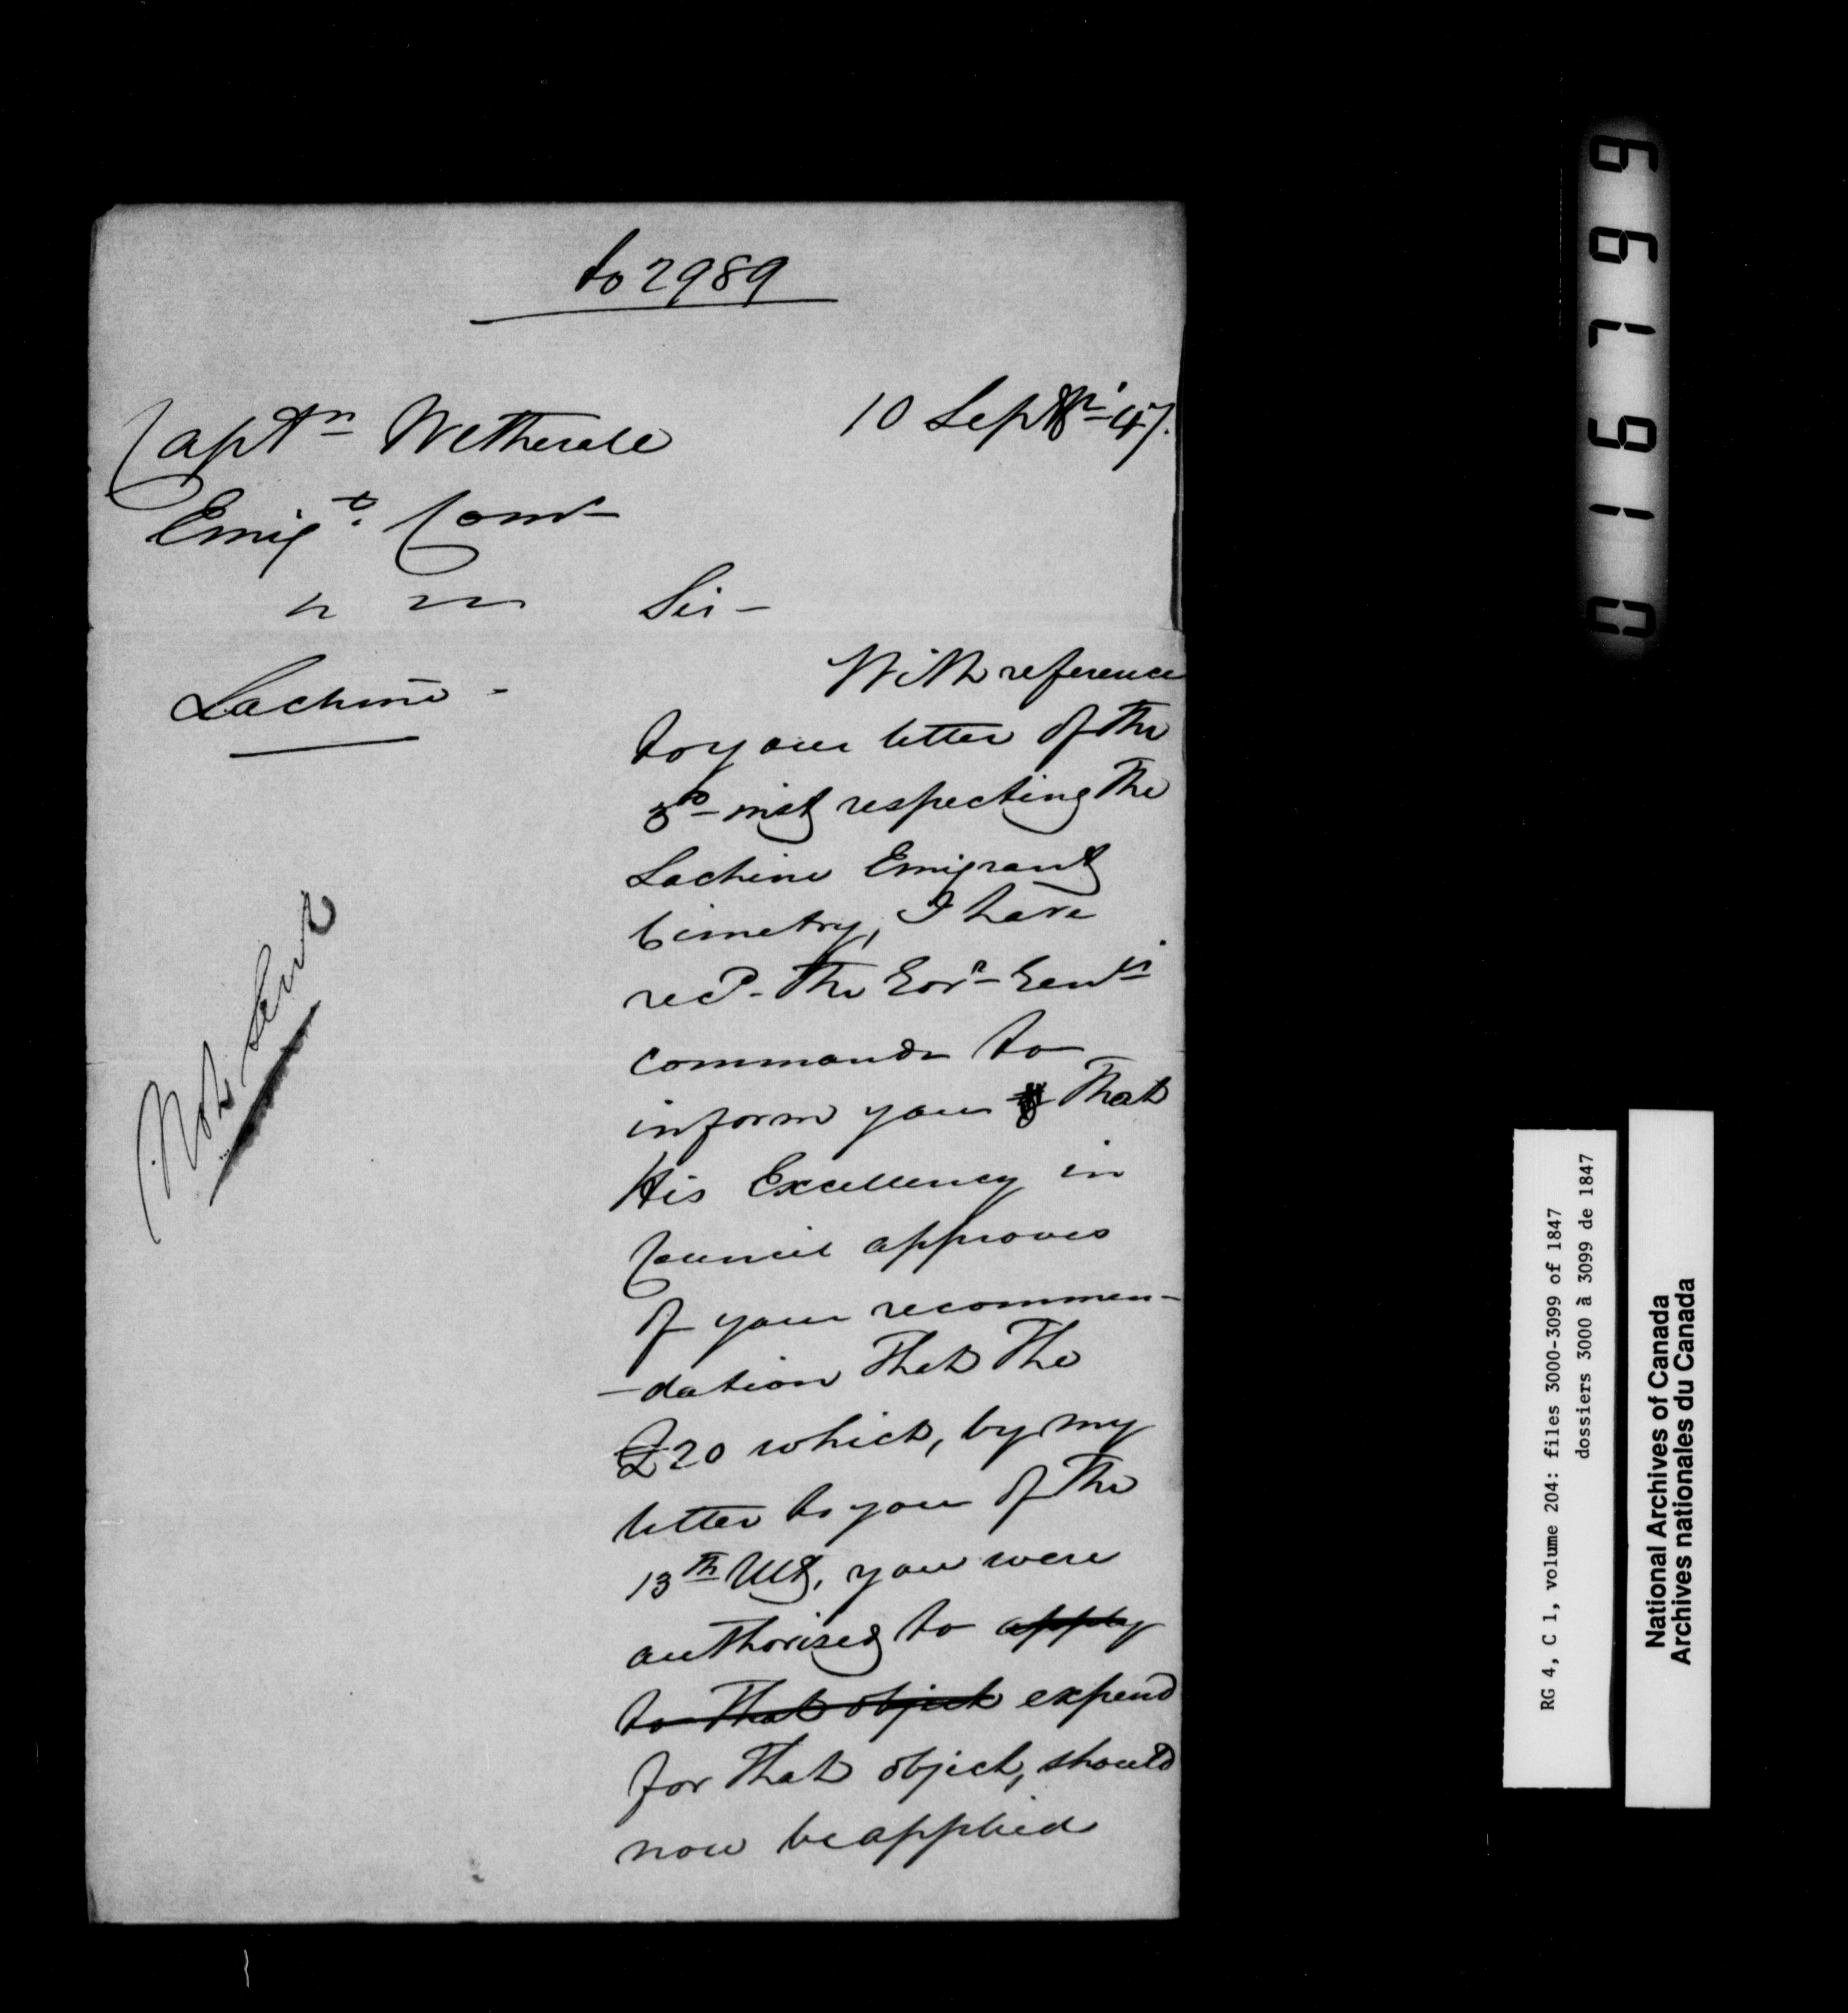 to 2989
10 Septr 47.
Captn Wetherall
Emigt. Comr
" "
Lachine -
Sir -
With reference
to your letter of the
3d inst respecting the
Lachine Emigrant
Cemetry, I have
recd. the Govr Genls
commands to
inform you that
His Excellency in
Council approves
of your recommen-
-dation that the
£20 which, by my
letter to you of the
13th Ult, you were
authorised to apply
to that object expend
for that object, should
now be applied
Not Sent
016199
RG 4, C 1, volume 204: files 3000-3099 of 1847
dossiers 3000 à 3099 de 1847
National Archives of Canada
Archives nationales du Canada